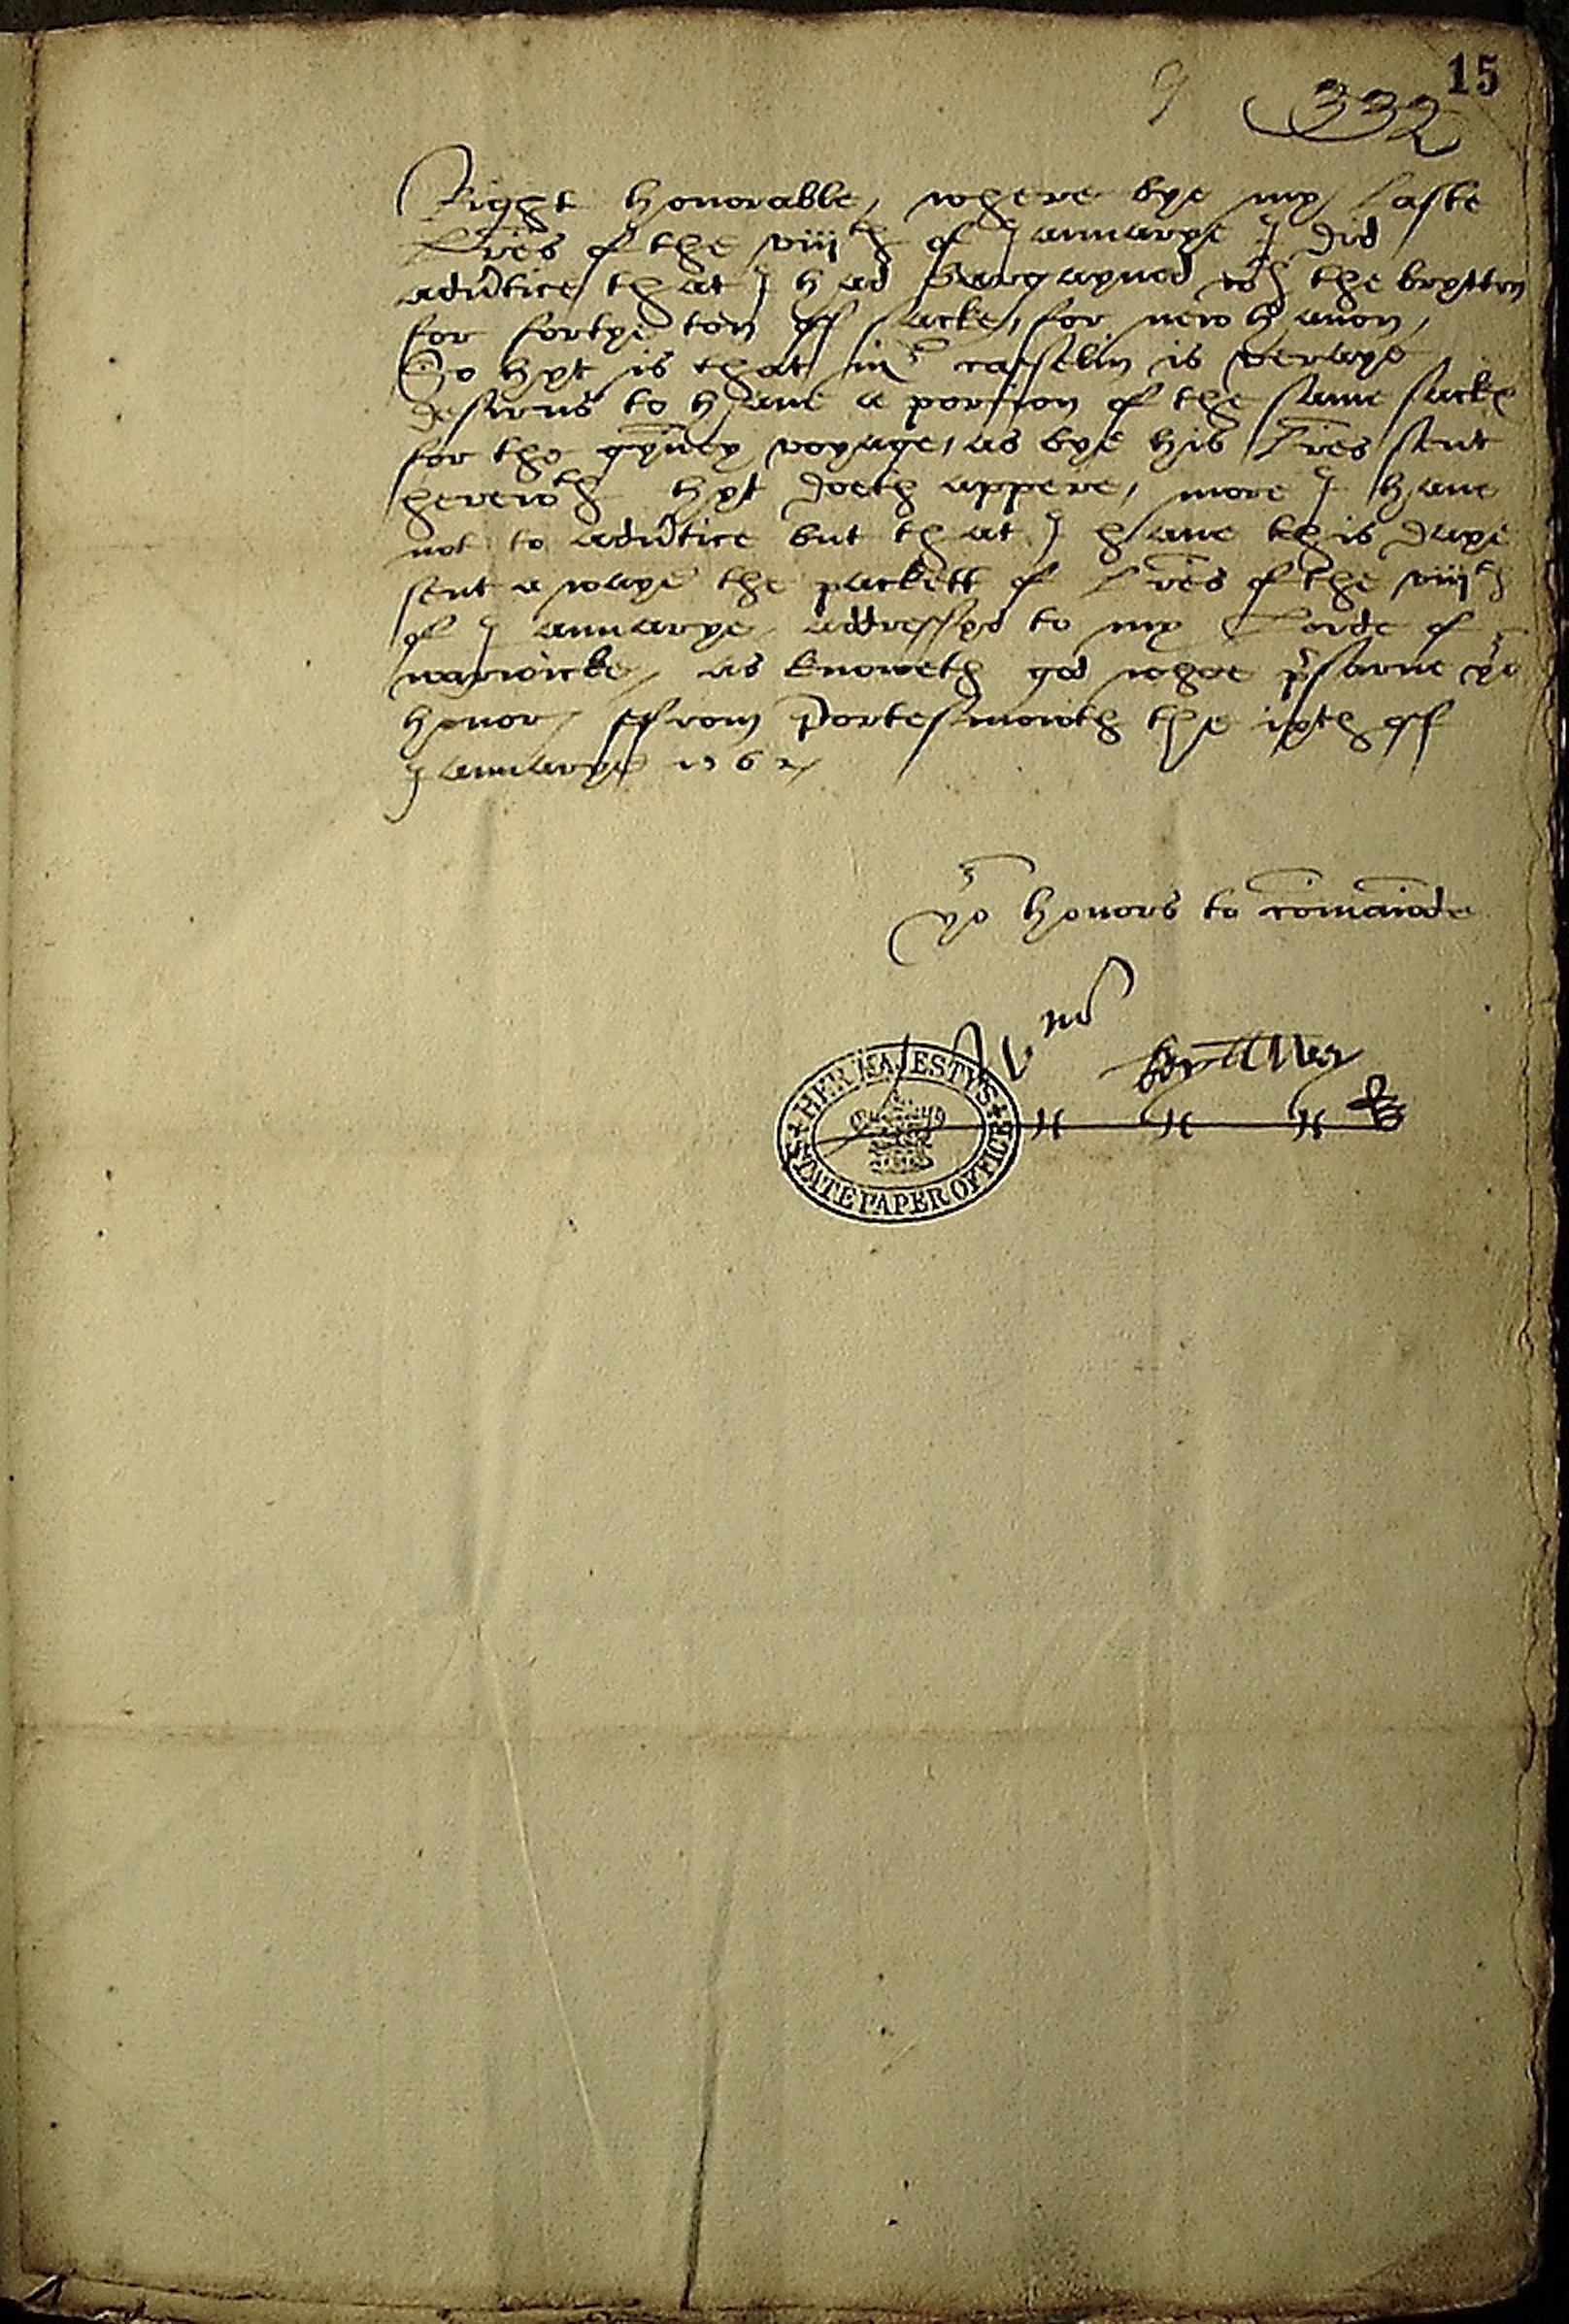 15
332
Right honorable, where bye my laste
lres of the viijth of Januarye I did
advertice that I had bargayned wth the brytton
for fortye ton off sacke, for new havon,
So hyt is that mr casselin is veraye
desirus to have a porsion of the same sacke
for the gynney voyage, as bye his lres sent
herewth hyt doeth appere, more I have
not to advertice but that I have this daye
sent awaye the packett of lres of the viijth
of Januarye addressyd to my Lorde of
warwicke, as knoweth god whoe prsarve yor
honor, ffrom Portesmowth the ixth off
Januarye 1562
yor honors to comaunde
HER MAJESTY'S
STATE PAPER OFFICE